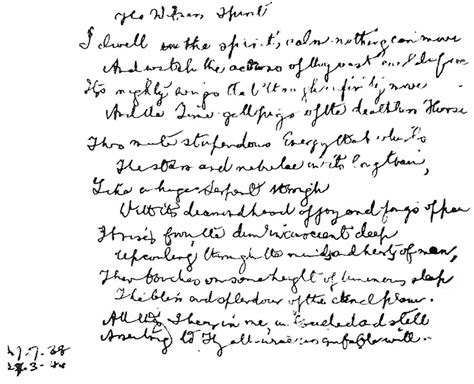 The Witness Spirit
I dwell in the spirit's calm nothing can move
And watch the actions of Thy vast
Its mighty wings that through infinity move
And the Time-gallopings of the deathless Horse
This mute stupendous Energy that whirls
The stars and nebulae in its long train,
Like a huge Serpent through
With its diamond hood of joy and fangs of pain
It rises from the dim inconscient deep
Upcoiling through the minds and hearts of men,
Then touches on some height of luminous sleep
The bliss and splendour of the eternal plane.
All this I bear in me, untouched and still
Assenting to Thy all-wise inscrutable will.